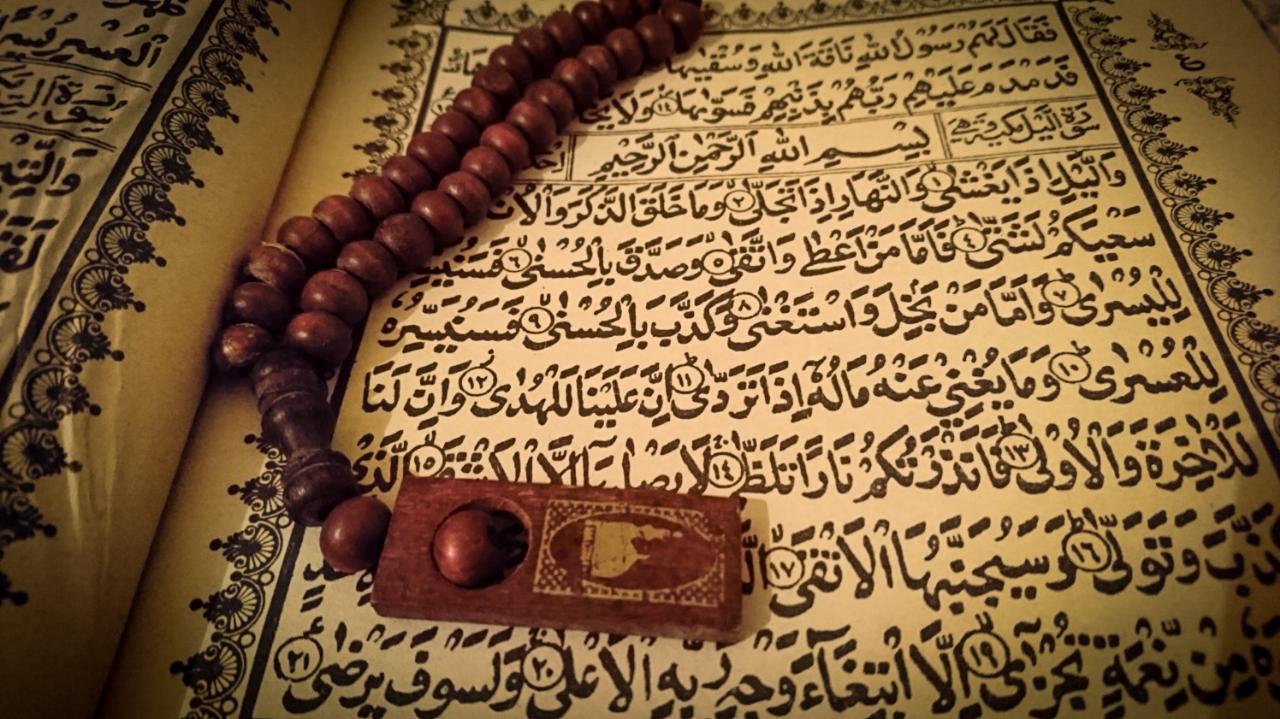 فَقَالَ لَهُمْ رَسُولُ اللّٰهِ نَاقَةَ اللّٰهِ وَسُقْيٰهَا
فَدَمْدَمَ عَلَيْهِمْ رَبُّهُمْ بِذَنْبِهِمْ فَسَوّٰىهَا ١٤ وَلَا
بِسْمِ اللهِ الرَّحْمٰنِ الرَّحِيْمِ
وَالَّيْلِ اِذَا يَغْشٰى ١ وَالنَّهَارِ اِذَا تَجَلّٰى ٢ وَمَا خَلَقَ الذَّكَرَ وَالْاُنْ
سَعْيَكُمْ لَشَتّٰى ٤ فَاَمَّا مَنْ اَعْطٰى وَاتَّقٰى ٥ وَصَدَّقَ بِالْحُسْنٰى ٦ فَسَنُيَسِّ
لِلْيُسْرٰى ٧ وَاَمَّا مَنْ بَخِلَ وَاسْتَغْنٰى ٨ وَكَذَّبَ بِالْحُسْنٰى ٩ فَسَنُيَسِّرُهٗ
لِلْعُسْرٰى ١٠ وَمَا يُغْنِيْ عَنْهُ مَالُهٗٓ اِذَا تَرَدّٰى ١١ اِنَّ عَلَيْنَا لَلْهُدٰى ١٢ وَاِنَّ لَنَا
لَلْاٰخِرَةَ وَالْاُوْلٰى ١٣ فَاَنْذَرْتُكُمْ نَارًا تَلَظّٰى ١٤ لَا يَصْلٰىهَآ اِلَّا الْاَشْقَى ١٥ الَّذِيْ
كَذَّبَ وَتَوَلّٰى ١٦ وَسَيُجَنَّبُهَا الْاَتْقَى ١٧
مِنْ نِّعْمَةٍ تُجْزٰٓى ١٩ اِلَّا ابْتِغَآءَ وَجْهِ رَبِّهِ الْاَعْلٰى ٢٠ وَلَسَوْفَ يَرْضٰى ٢١